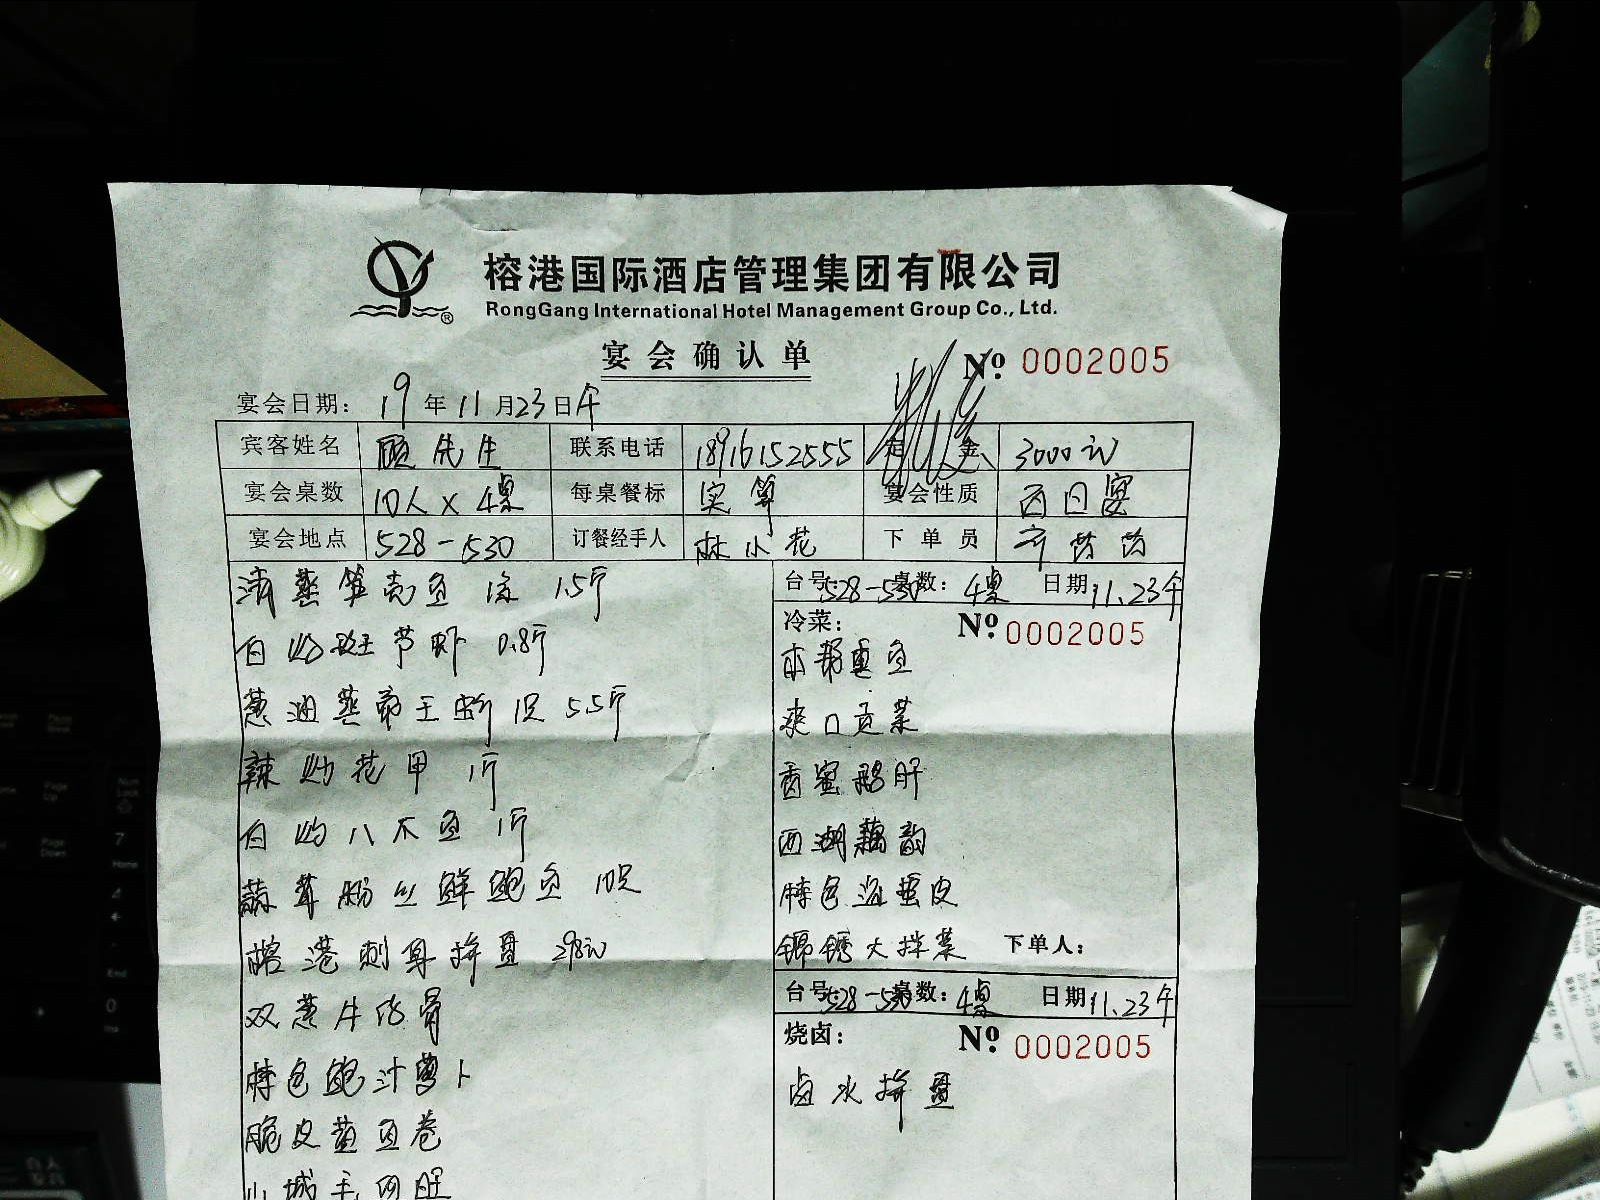 榕港国际酒店管理集团有限公司
RongGang International Hotel Management Group Co., Ltd.
宴会确认单
No. 0002005
宴会日期： 19 年 11 月 23 日 午
宾客姓名 顾先生 联系电话 18916152555 定金 3000元
宴会桌数 10人×4桌 每桌餐标 实算 宴会性质 百日宴
宴会地点 528-530 订餐经手人 林小花 下单员
清蒸笋壳鱼 1条 1.5斤
白灼斑节虾 0.8斤
葱油蒸帝王蟹 1只 5.5斤
辣炒花甲 1斤
白灼八爪鱼 1斤
蒜茸粉丝鲜鲍鱼 10只
榕港刺身拼盘 298元
双葱牛仔骨
特色鲍汁萝卜
脆皮黄鱼卷
山城毛血旺
台号：528-530 桌数：4桌 日期 11.23午
冷菜： No. 0002005
本帮熏鱼
爽口贡菜
香蜜鹅肝
西湖藕韵
特色海蜇皮
锦绣大拌菜 下单人：
台号：528-530 桌数：4桌 日期 11.23午
烧卤： No. 0002005
卤水拼盘